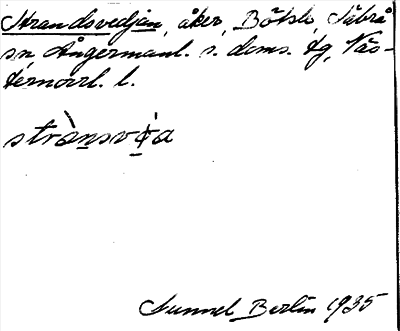 Strandsvedjan, åker, Bölsle, Säbrå
sn Ångermanl. s. doms. tg, Väs-
ternorrl. l.
strànsvǿa
Gunnel Bertin 1935